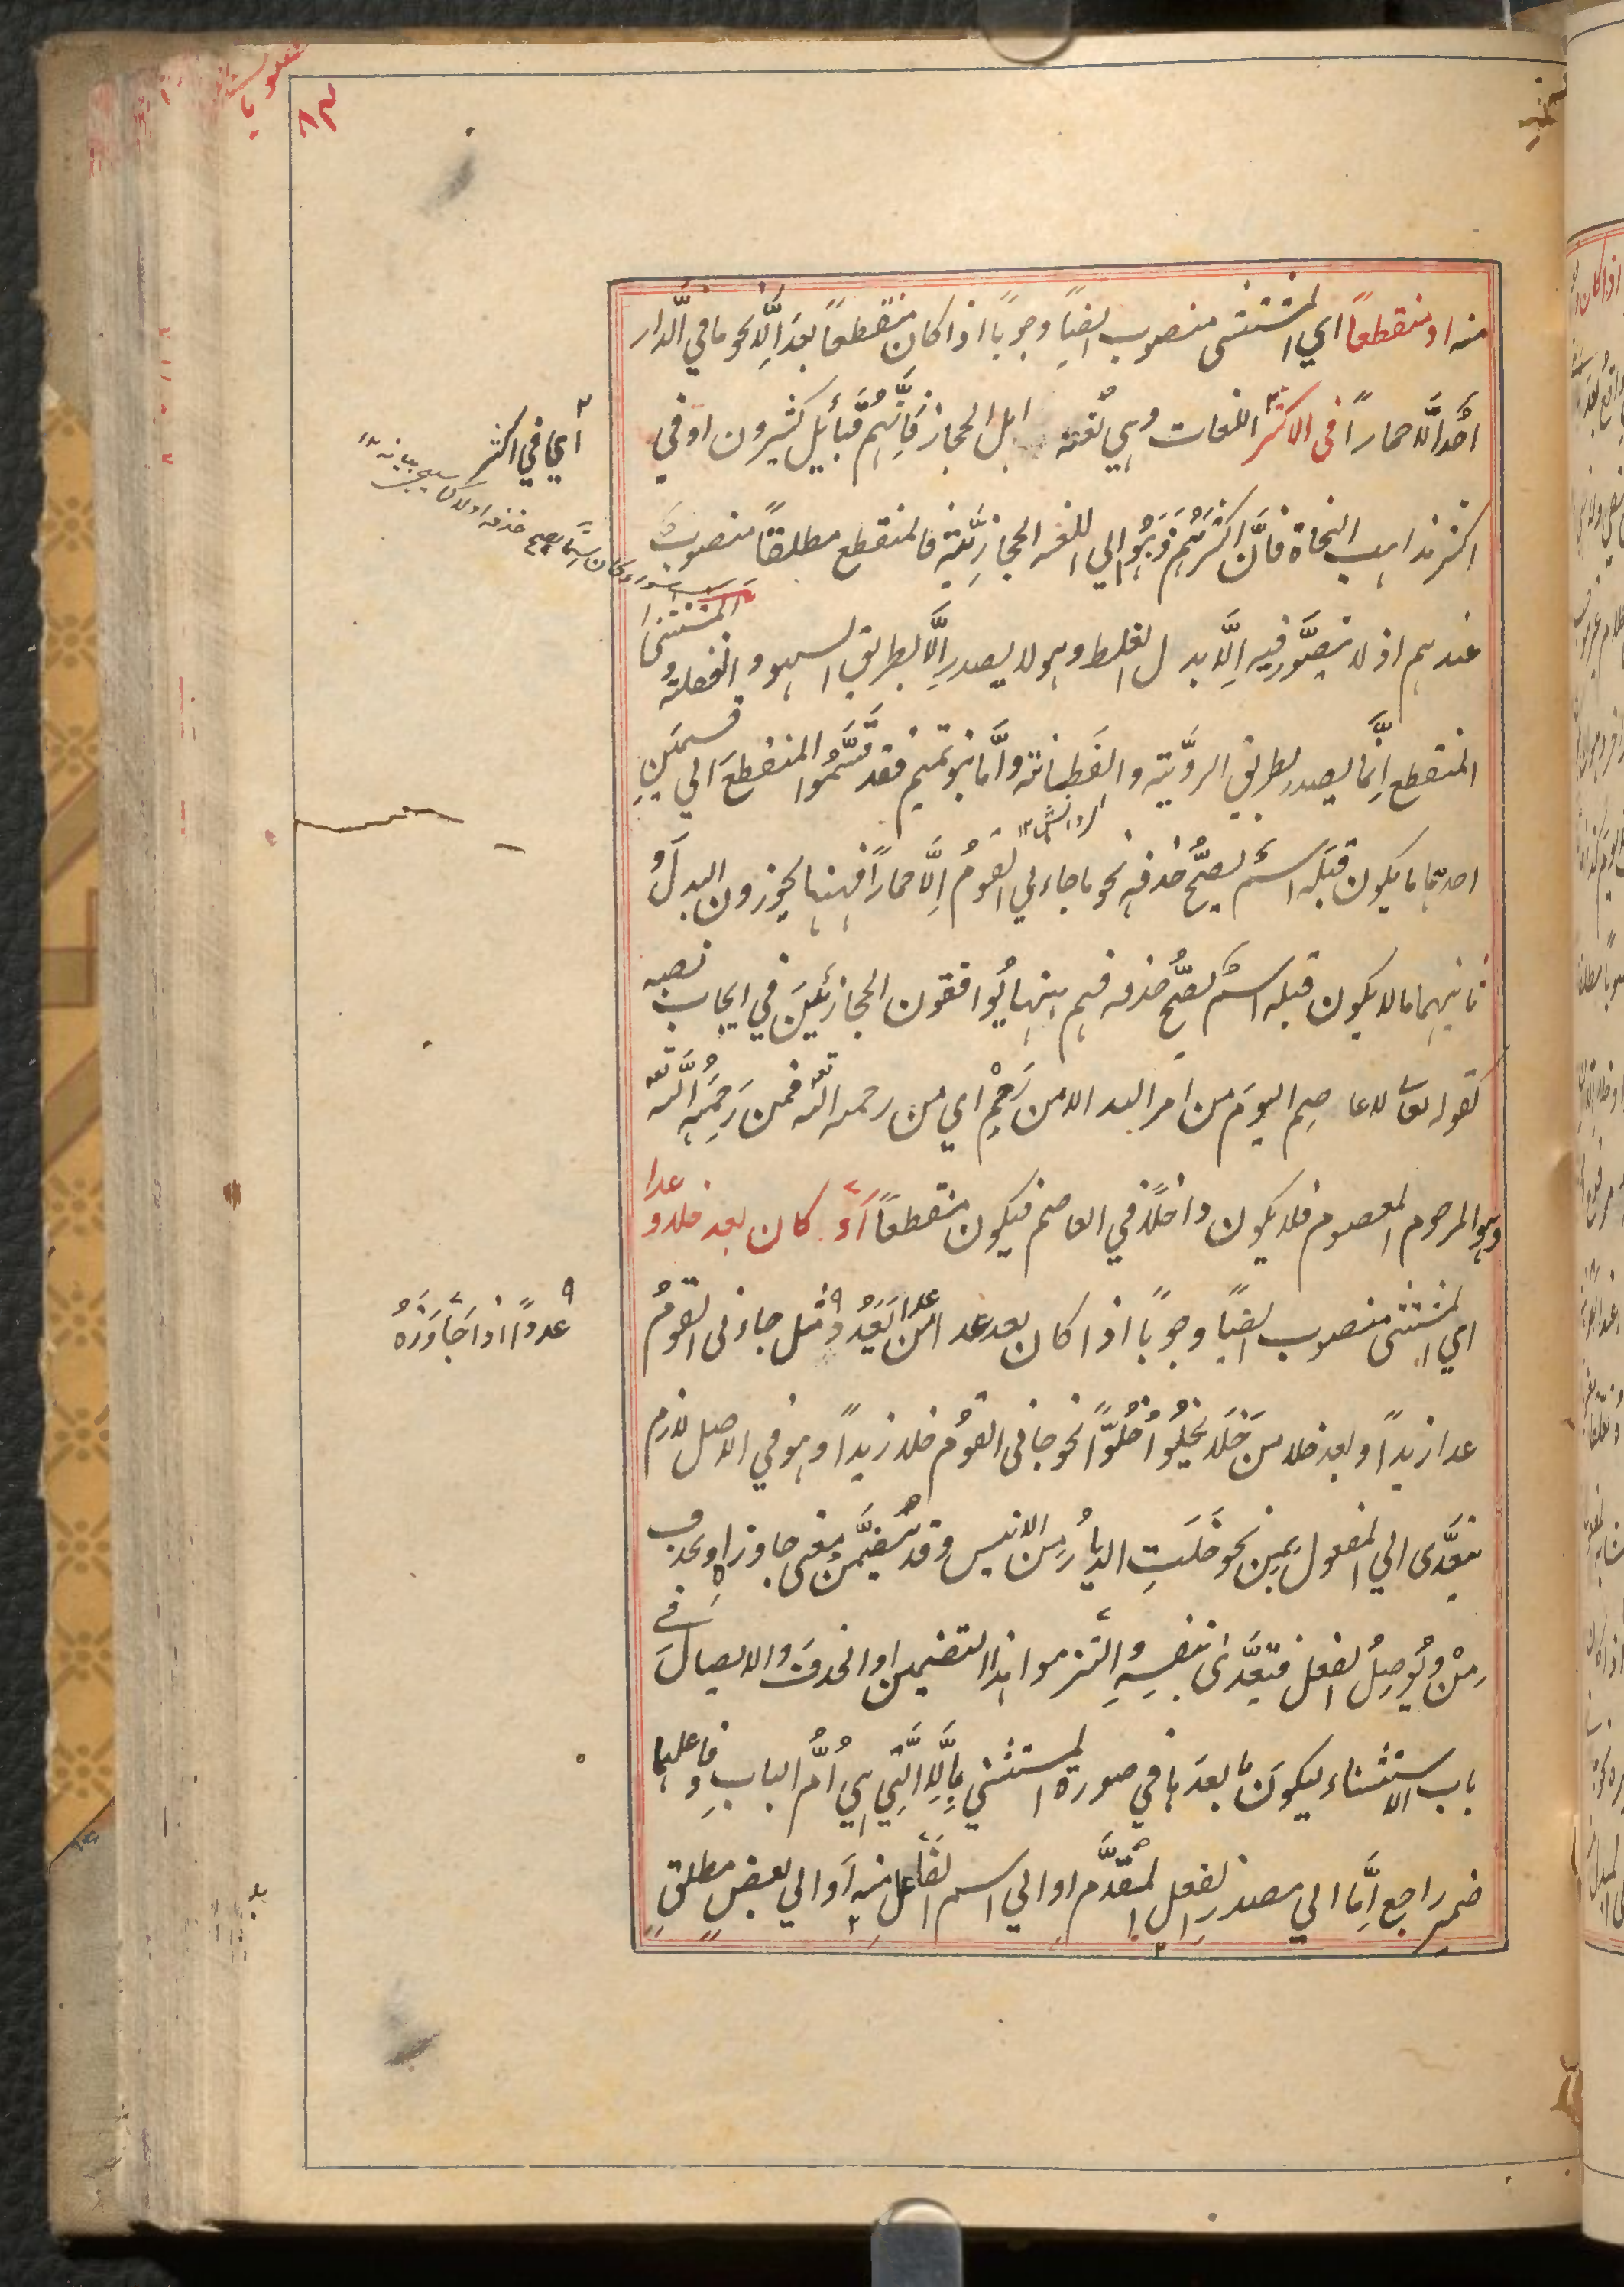 منه او منقطعاً اي المستثنى منصوب ايضاً وجوباً اذا كان منقطعاً بعد اِلَّا نحو ما في الدَّار
احدٌ اِلَّا حماراً في الاكثر اللغات وهي لُغة اهل الحجاز فَاِنَّهُم قبائِل كثيرون او في
اكثر مذاهب النحاة فاَنَّ اكثرَهُم ذَهَبُوا الي اللغة الحجازِيَّةِ فالمنقطع مطلقاً منصوبٌ
عندهم اذ لا يتصَوَّر فيه اِلَّا بدل الغلط وهو لا يصدر اِلَّا بطريق السهو و الغفلة و المستثنى
المنقطع اِنَّما يصدر بطريق الروِيَّة والفَطانة واَمَّا بنو تميم فقد قَسَّمُوا المنقطعَ الي قسمَينِ
احدهما ما يكون قبلَه اسمٌ يصحُّ حذفه نحو ما جاءني القومُ اِلَّا حماراً فههنا يجوزون البدلَ و
ثانيهما ما لا يكون قبله اسمٌ يصحُّ حذفه فهم ههنا يُوافقون الحجازِيّينَ في ايجاب نصبه
كقوله تعالى لا عاصِم اليومَ من امر الله الا من رَحِمَ اي من رحمه الله تعه فمن رَحِمَهُ اللَّه تعه
وهو المرحوم المعصوم فلا يكون داخلاً في العاصم فيكون منقطعاً اَو كان بعد خلا و عدا
اي المستثنى منصوب ايضاً وجوباً اذا كان بعد عدا من عدا يَعْدُو مثل جاءني القومُ
عدا زيداً وبعد خلا من خَلَا يَخلُوا خُلُوّاً نحو جاءني القومُ خلا زيداً وهو في الاصل لازم
يتعدَّى الي المفعول بمِن نحو خَلَتِ الديارُ من الانيس وقد تضمَّن معنى جاوز او يحذف
مِنْ ويُوصِلُ الفعل فتعدَّى بنفسِهِ والتزموا هذا التضمين او الحذفَ والايصالَ في
باب الاستثناء ليكونَ ما بعدَها في صورة المستثني بِاِلَّا الَّتِي هي اُمُّ الباب وفاعلها
ضمير راجع اِمَّا الي مصدر الفعل المقَدَّم او الي اسم الفاعل منه اَو الي بعضٍ مطلقٍ
اي في اكثر
عدواً اذا جَاوَزَهُ